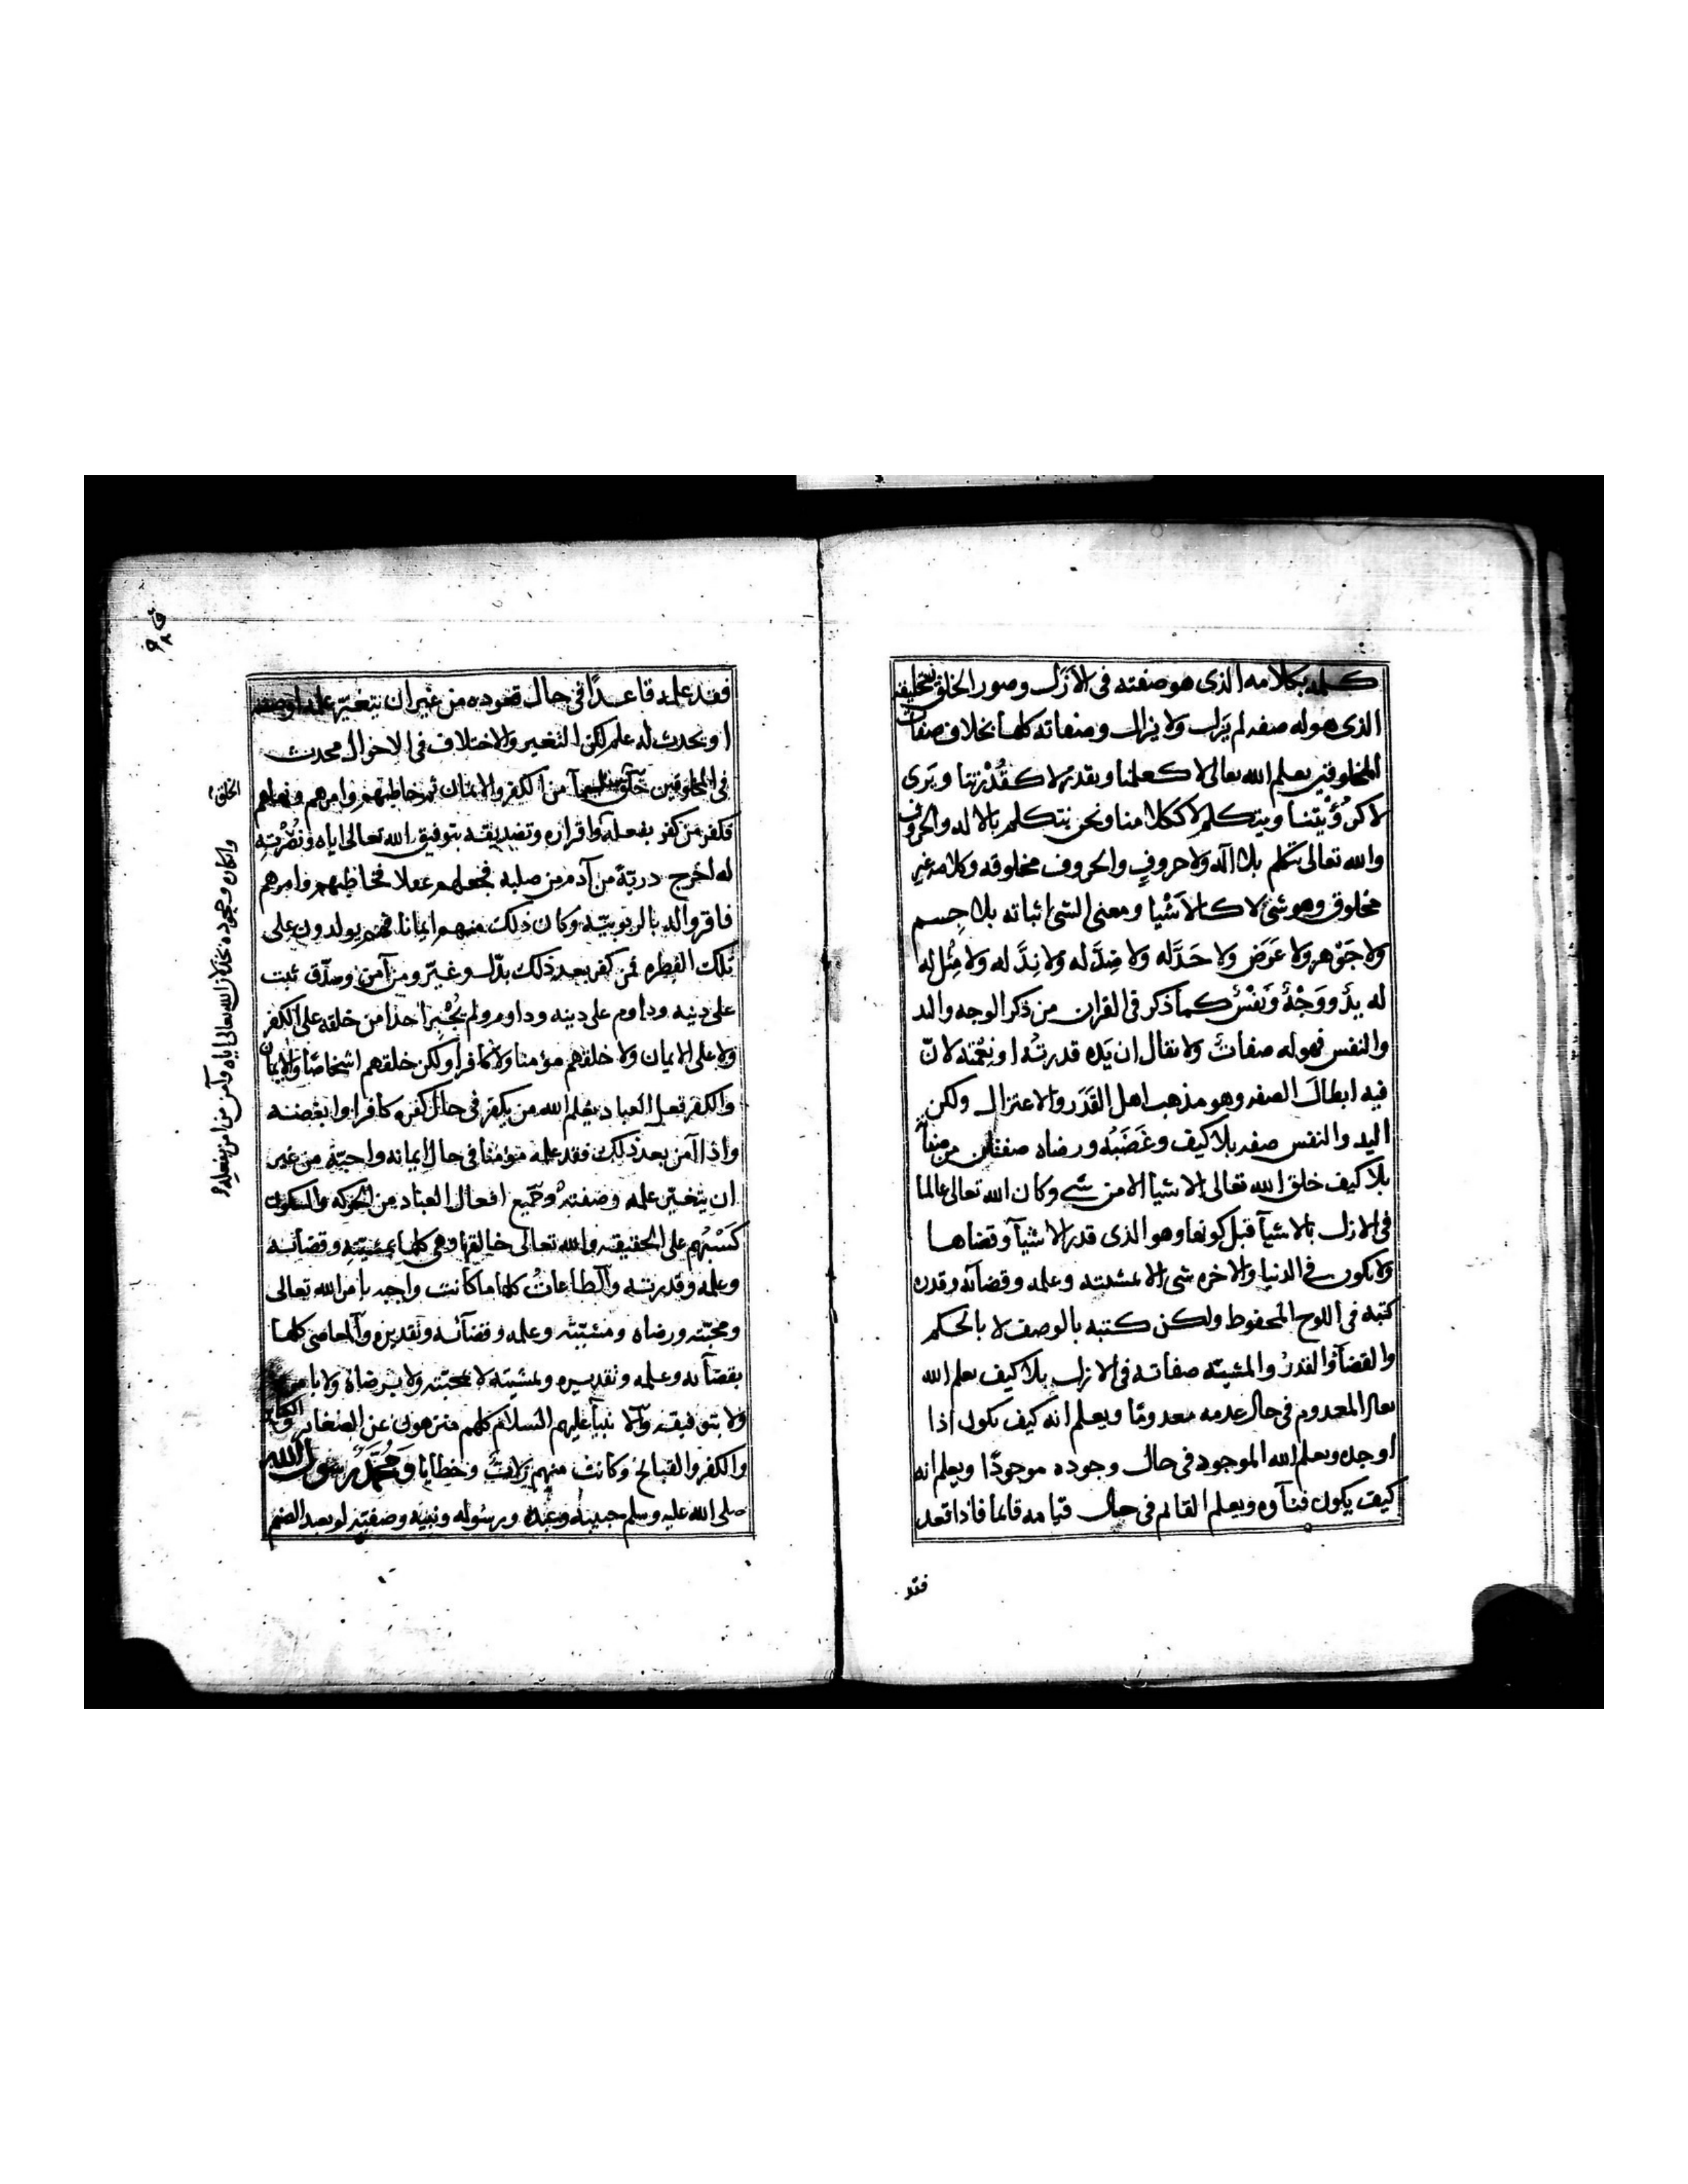 كلمه بكلامه الذى هو صفته فى الازل وصور الخلق بتخليقه
الذى هو له صفه لم يزل ولا يزال وصفاته كلها بخلاف صفات
المخلوقين يعلم الله تعالى لا كعلمنا ويقدر لا كقُدْرتنا ويَرى
لا كرُؤْيتنا ويتكلم لا ككلامنا ونحن نتكلم بالاله والحروف
والله تعالى يتكلم بلا اله ولا حروفٍ والحروف مخلوقه وكلامه غير
مخلوق وهو شئ لا كالاَشْيا ومعنى الشئ اثباته بلا جِسم
ولا جَوْهر ولا عَرَض ولا حَدَّ له ولا ضِدَّ له ولا نِدَّ له ولا مِثْل له
له يدٌ ووَجْهٌ ونَفْسٌ كما ذكر فى القران من ذكر الوجه واليد
والنفس فهو له صفاتٌ ولا نقال ان يَده قدرتُه او نِعْمته لانّ
فيه ابطالَ الصفه وهو مذهب اهل القَدَر والاعتزال ولكن
اليد والنفس صفه بلا كيف وغَضَبُه ورضاه صفتان من صفاته
بلا كيف خلق الله تعالى الاشيا لا من شئ وكان الله تعالى عالما
فى الازل بالاشيآ قبل كونها وهو الذى قدر الاشيآ وقضاها
ولا يكون فى الدنيا والاخره شئ الا بمشيته وعلمه وقضآئه وقدره
كتبه فى اللوح المحفوظ ولكن كتبه بالوصف لا بالحكم
والقضآ والقدرُ والمشيّه صفاته فى الازل بلا كيف يعلم الله
تعالى المعدوم فى حال عدمه معدومًا ويعلم انه كيف يكون اذا
اوجده ويعلم الله الموجود فى حال وجوده موجودًا ويعلم انه
كيف يكون فنآوه ويعلم القائم فى حال قيامه قائما فاذا قعد
فقد
فقد علمه قاعدًا فى حال قعوده من غير ان يتغيّر علمه او صفته
او يحدث له علم لكن التغير والاختلاف فى الاحوال محدث
فى المخلوقين خلق سليما من الكفر والايمان ثم خاطبهم وامرهم ونهاهم
فكفر من كفر بفعله واقراره وتصديقه بتوفيق الله تعالى اياه ونُصْرتِهِ
له اخرج ذريّة من آدم من صلبه فجعلهم عقلا فخاطبهم وامرهم
فاقروا له بالربوبيّه وكان ذلك منهم ايمانا فهم يولدون على
تلك الفطره فمن كفر بعد ذلك بدّل وغيّر ومن آمن وصدّق ثبت
على دينه وداوم على دينه وداوم ولم يُجْبِر احدا من خلقه على الكفر
ولا على الايمان ولا خلقهم مومنا ولا كافرا ولكن خلقهم اشخاصًا والايمان
والكفر فعل العباد يعلم الله من يكفر فى حال كفره كافرا وابغضه
واذا آمن بعد ذلك فقد علمه مومنا فى حال ايمانه واحبّه من غير
ان يتغيّر علمه وصفته وجميع افعال العباد من الحركه والسكون
كَسْبُهم على الحقيقه والله تعالى خالقها وهى كلها بمشيّته وقضآئه
وعلمه وقدرته والطاعاتُ كلها ما كانت واجبه بامر الله تعالى
ومحبّته ورضاه ومشيّته وعلمه وقضآئه وتقديره والمعاصى كلها
بقضآئه وعلمه وتقديره ومشيّته لا بمحبّته ولا برضاه ولا بامره
ولا بتوفيقه والانبيآ عليهم السلام كلهم منزهون عن الصغائر والكبائر
والكفر والقبائح وكانت منهم زلاتٌ وخطايا ومُحمَّد رسول الله
صلى الله عليه وسلم حبيبه وعبده ورسوله ونبيه وصفيّه لم يعبد الصنم
الخلق
وانكاره وجحوده بخذلان الله تعالى اياه وآمن من امن بفعله